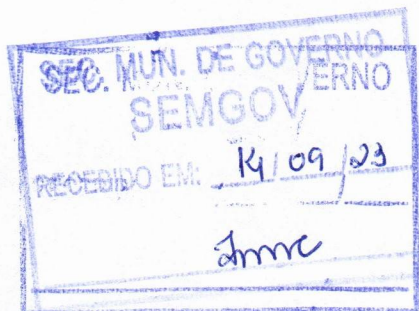 SEC. MUN. DE GOVERNO
SEMGOV
RECEBIDO EM: 14/09/23